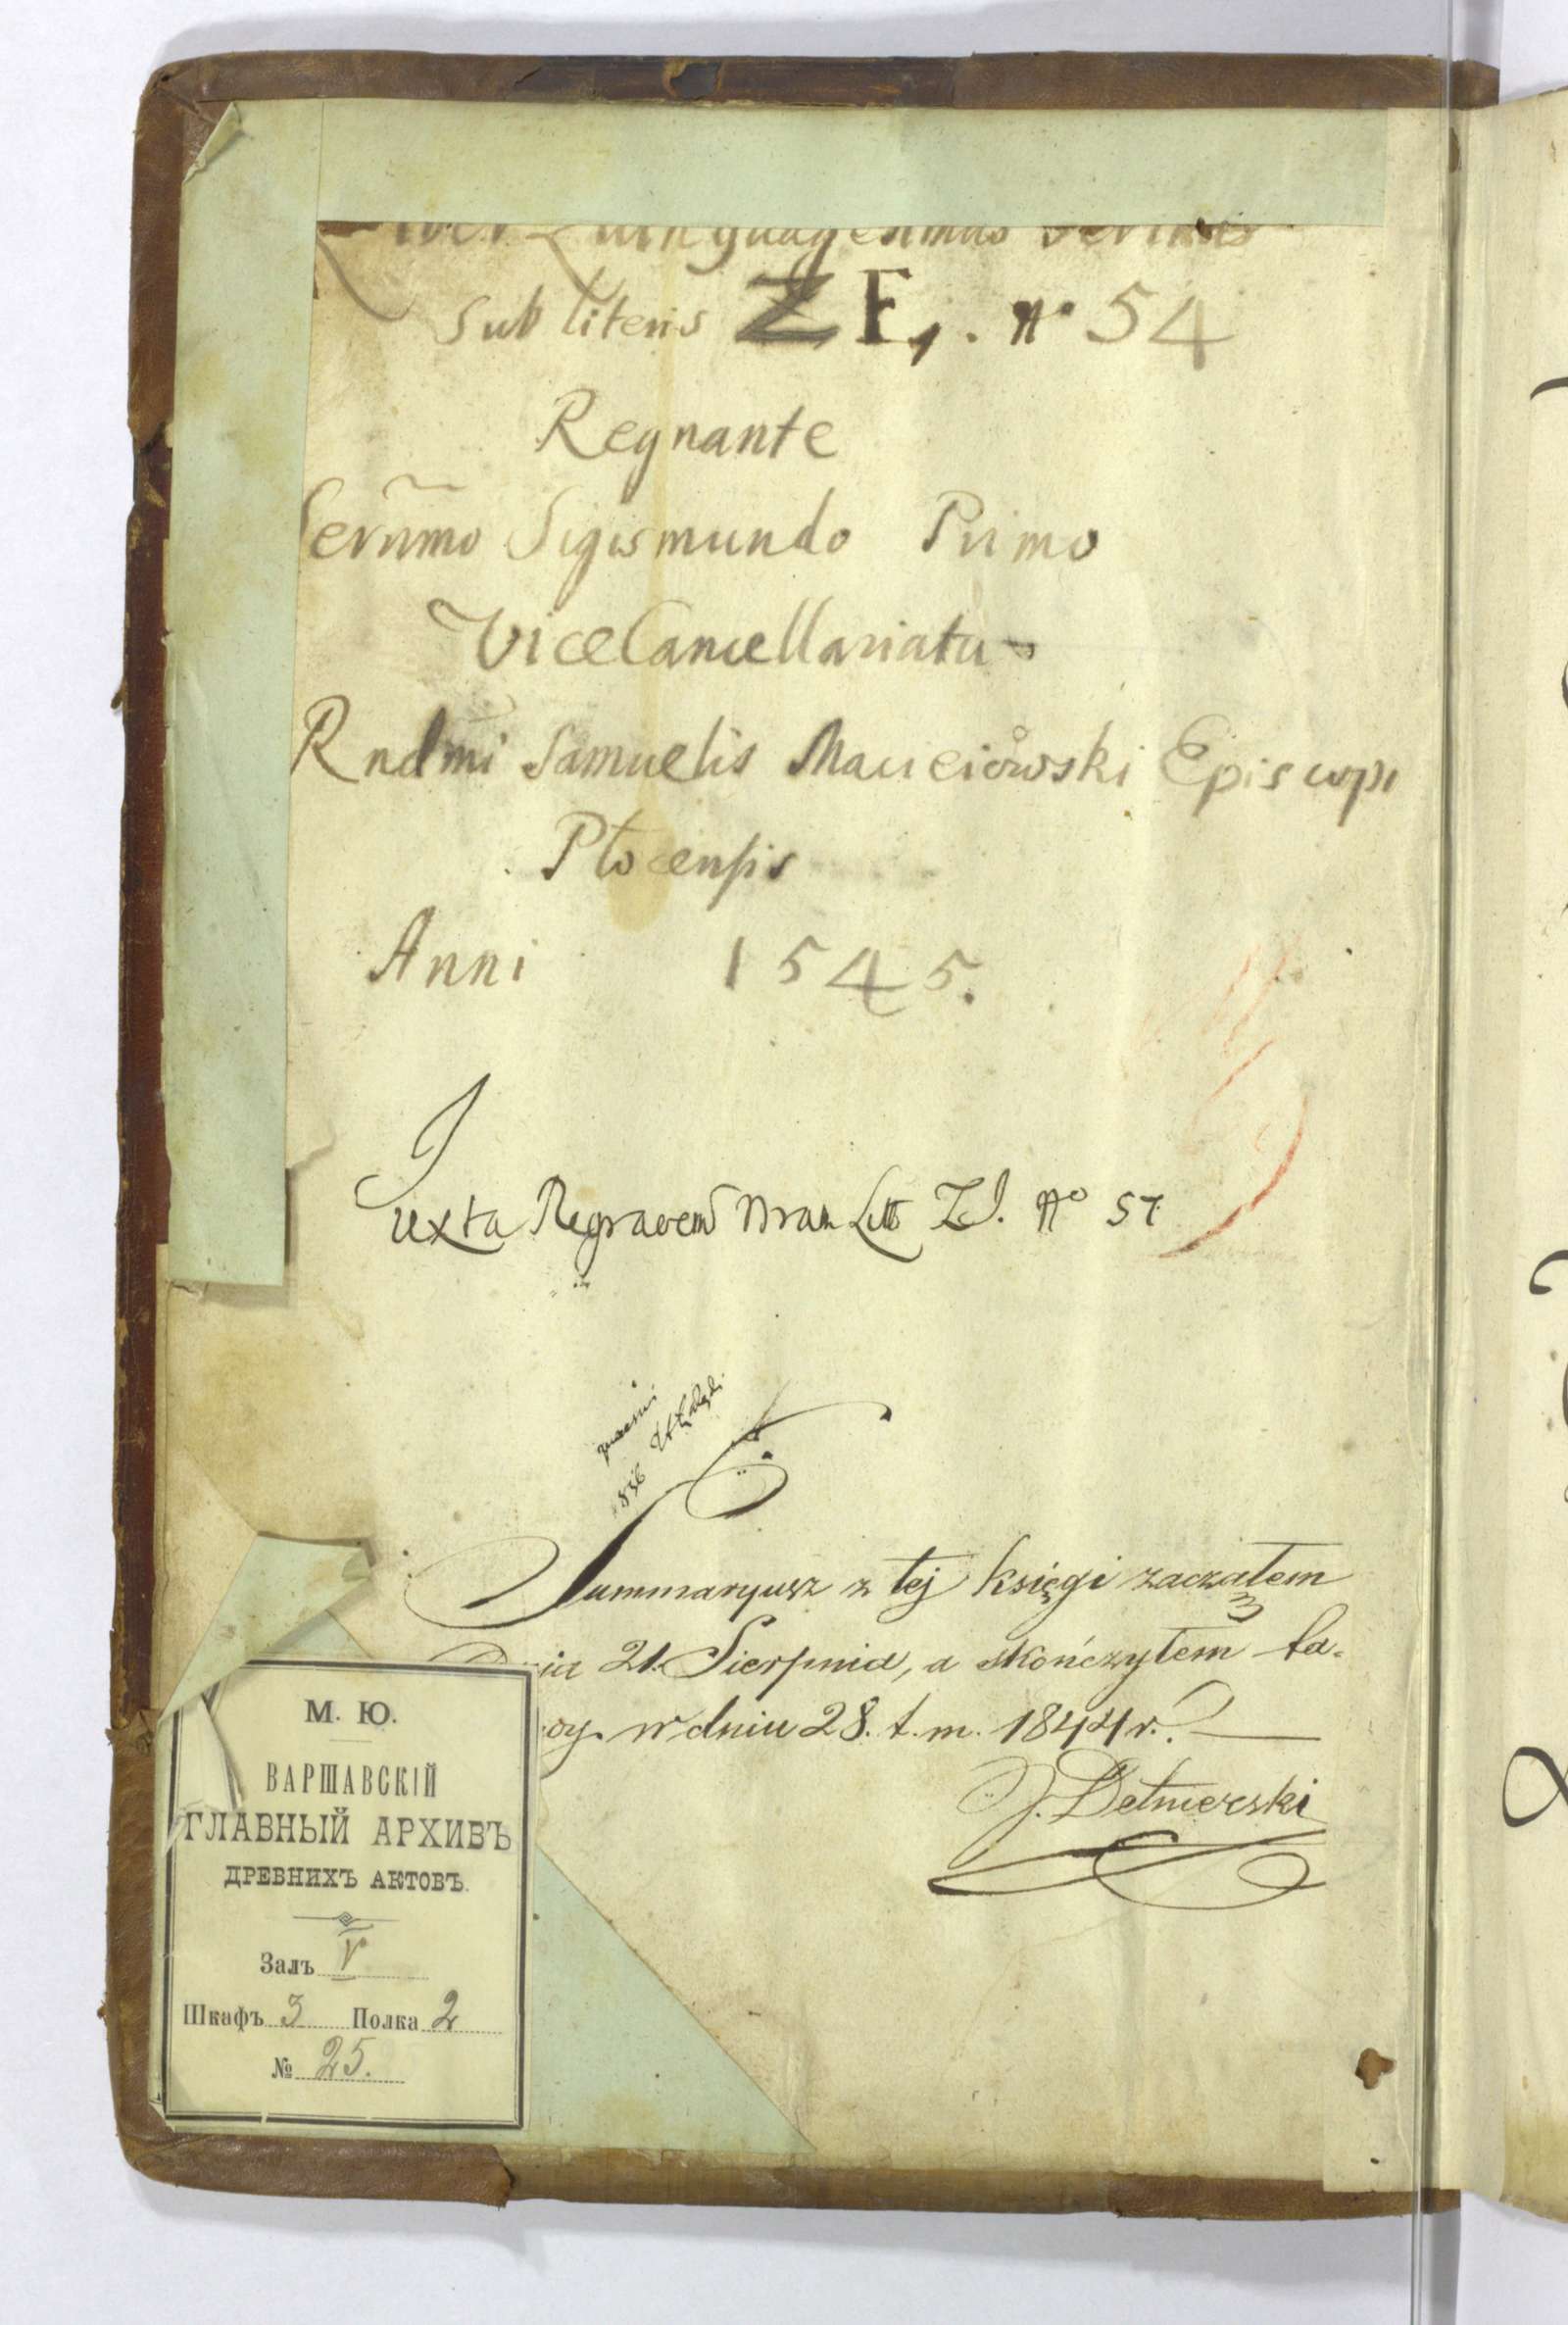 Liber Quinquagesimus
Sub literis ZF, . No 54
Regnante
Serñmo Sigismundo Primo
ViceCancellariatus
Rndmi Samuelis Macieiowski Episcopi
Płocensis
Anni 1545.
Juxta Nram Litt ZJ. No 57
1836
Summaryusz z tej księgi zacząłem
Dnia 21. Sierpnia, a skończyłem ta-
w dniu 28. t. m. 1844 r.
J. Detmerski
М. Ю.
ВАРШАВСКІЙ
ГЛАВНЫЙ АРХИВЪ
ДРЕВНИХЪ АКТОВЪ.
Залъ V
Шкафъ 3 Полка 2
№ 25.